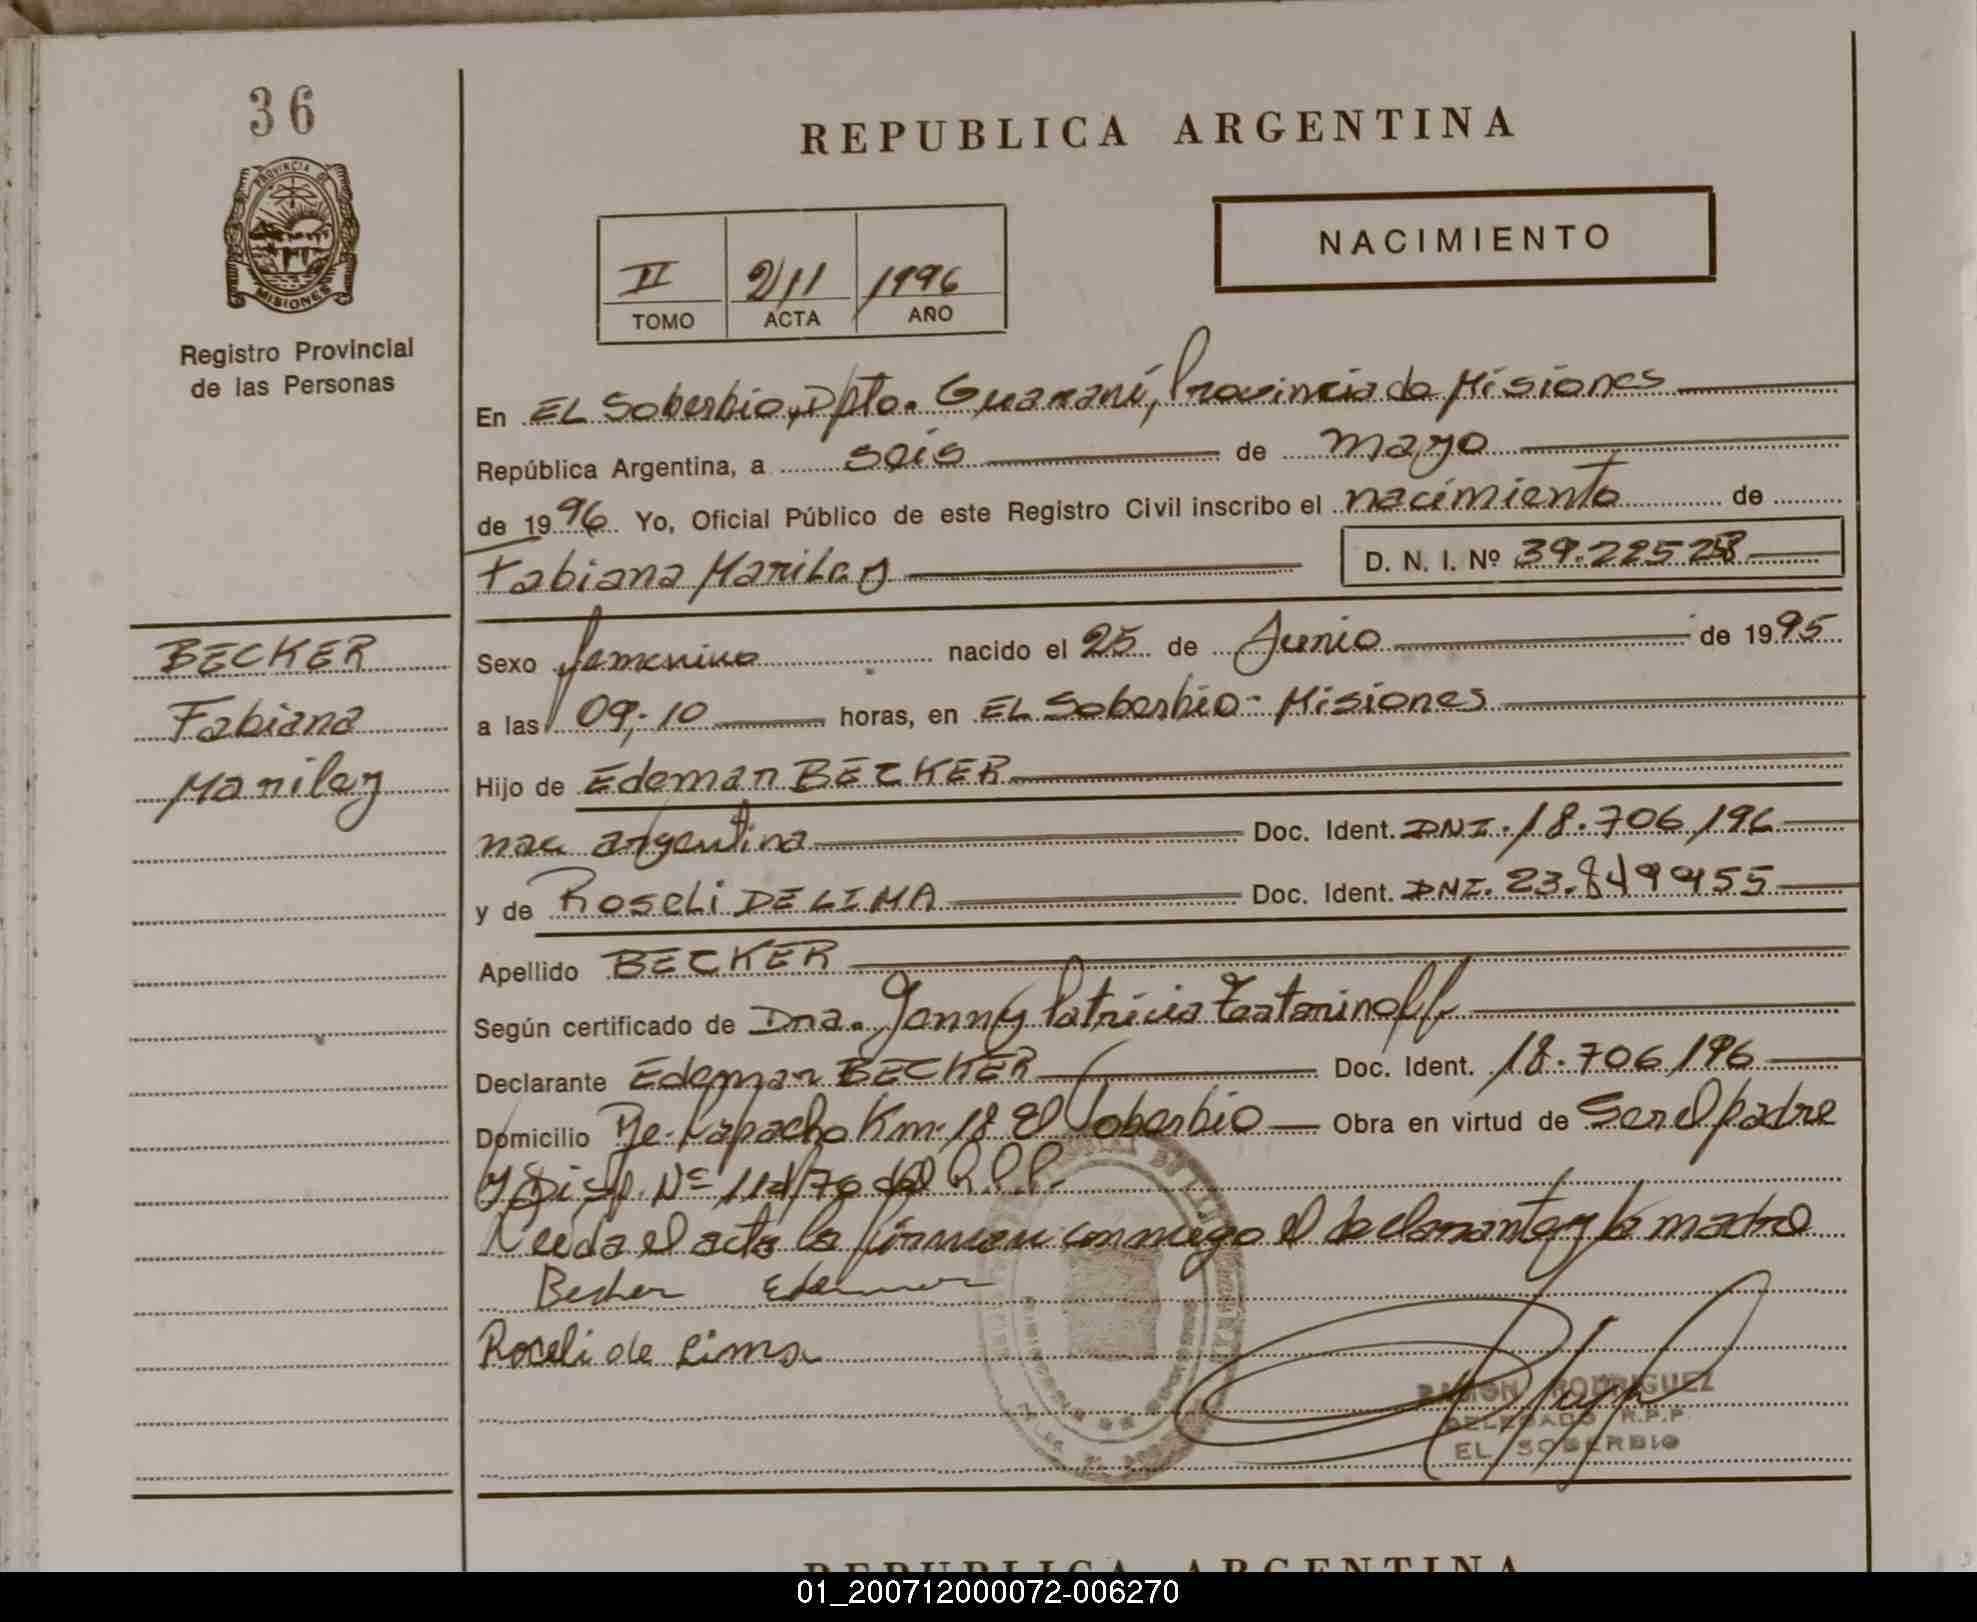 36
REPUBLICA ARGENTINA
PROVINCIA DE
MISIONES
NACIMIENTO
II 211 1996
TOMO ACTA AÑO
Registro Provincial
de las Personas
En EL Soberbio, Dpto. Guaraní, Provincia de Misiones
República Argentina, a seis de mayo
de 1996 Yo, Oficial Público de este Registro Civil inscribo el nacimiento de
Fabiana Mariley D. N. I. Nº 39.225.2
BECKER
Fabiana
Mariley
Sexo femenino nacido el 25 de Junio de 1995
a las 09,-10 horas, en EL Soberbio - Misiones
Hijo de Edemar BECKER
nac argentina Doc. Ident. DNI. 18.706.196
y de Roseli DE LIMA Doc. Ident. DNI. 23.849.455
Apellido BECKER
Según certificado de Dra. Jenny Patricia
Declarante Edemar BECKER Doc. Ident. 18.706.196
Domicilio Pje. Lapacho Km. 18 El Soberbio Obra en virtud de Ser el padre
y Disp. Nº /70 del R.P.P.
Leida el acta la firman conmigo el declarante y la madre
Becker Edemar
Roceli de Lima
RAMON RODRIGUEZ
DELEGADO R.P.P
EL SOBERBIO
REPUBLICA ARGENTINA
01_200712000072-006270